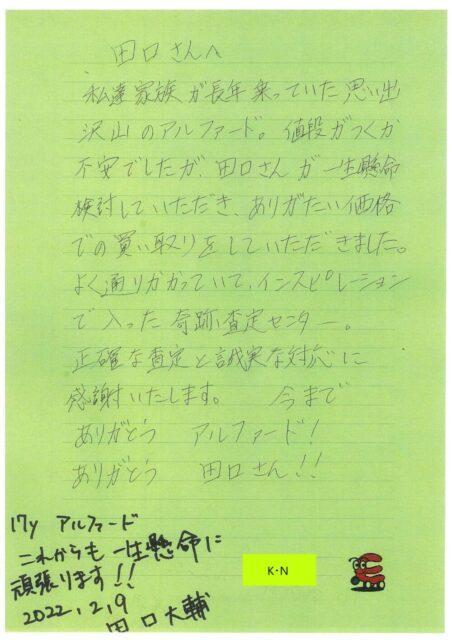 田口さんへ
私達家族が長年乗っていた思い出
沢山のアルファード。値段がつくか
不安でしたが、田口さんが一生懸命
検討していただき、ありがたい価格
での買い取りをしていただきました。
よく通りかかっていて、インスピレーション
で入った奇跡査定センター。
正確な査定と誠実な対応に
感謝いたします。 今まで
ありがとう アルファード!
ありがとう 田口さん!!
17y アルファード
これからも一生懸命に
頑張ります!!
2022.2.9
田口大輔
K・N